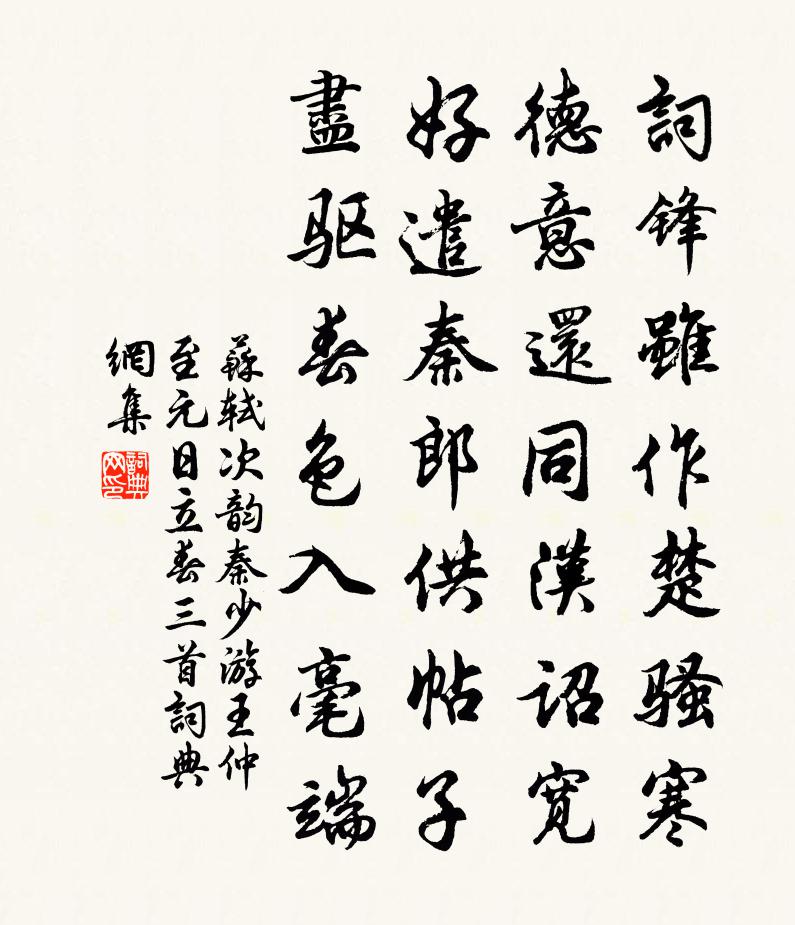 詞鋒雖作楚骚寒
德意還同漢詔寬
好遣秦郎供帖子
盡驱春色入毫端
蘇轼次韵秦少游王仲
至元日立春三首詞典
網集
詞典网印